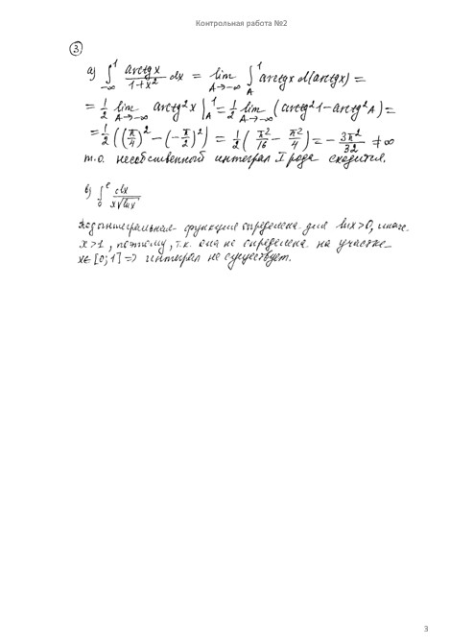 Контрольная работа №2
③
а) ∫_{-∞}^{1} arctgx / 1+x² dx = lim_{A→-∞} ∫_{A}^{1} arctgx d(arctgx) =
= 1/2 lim_{A→-∞} arctg²x |_{A}^{1} = 1/2 lim_{A→-∞} (arctg²1 - arctg²A) =
= 1/2 ((π/4)² - (-π/2)²) = 1/2 (π²/16 - π²/4) = - 3π²/32 ≠ ∞
т.о. несобственный интеграл I рода сходится.
в) ∫_{0}^{e} dx / x√lnx
Подынтегральная функция определена для lnx>0, иначе
x>1, поэтому, т.к. она не определена на участке
x∈[0;1] => интеграл не существует.
3